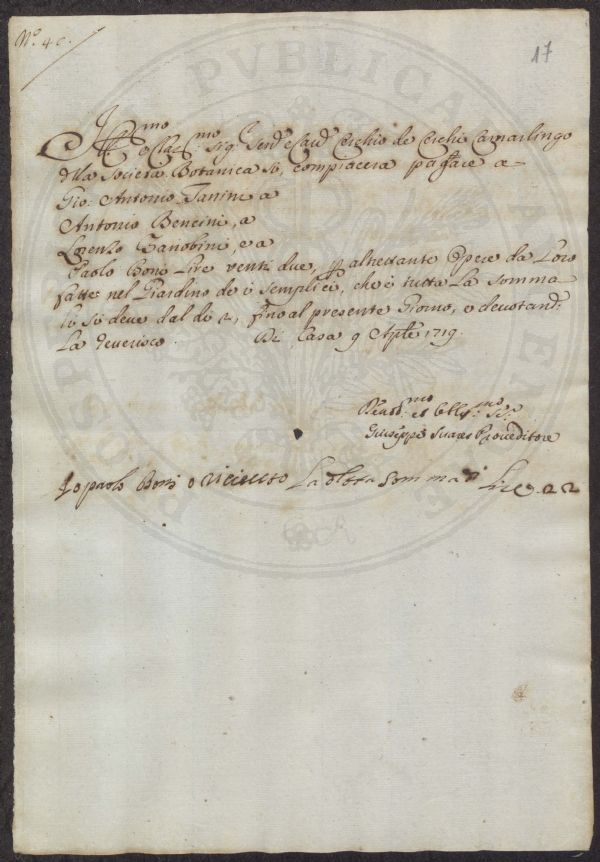 N.º 4 c.
17
Ill.mo e Clar.mo Sig.r Send.e Cav.r Cerchio de Cerchi Camarlingo
della Società Botanica si compiacerà pagare a
Gio: Antonio Tanini a
Antonio Bencini, a
Lorenzo Zanobini, e a
Paolo Boni Lire venti due, p altrettante Opere da Loro
fatte nel Giardino de i semplici, che è tutta La somma
li si deve dal dì 2, fino al presente Giorno, e devotam.e
La reverisco. Di Casa 9 Aple 1719.
Devot.mo et Obblig.mo Se.r
Giuseppe Suares Proveditore
Io paolo Boni o riceuto La detta Somma di Lire 22